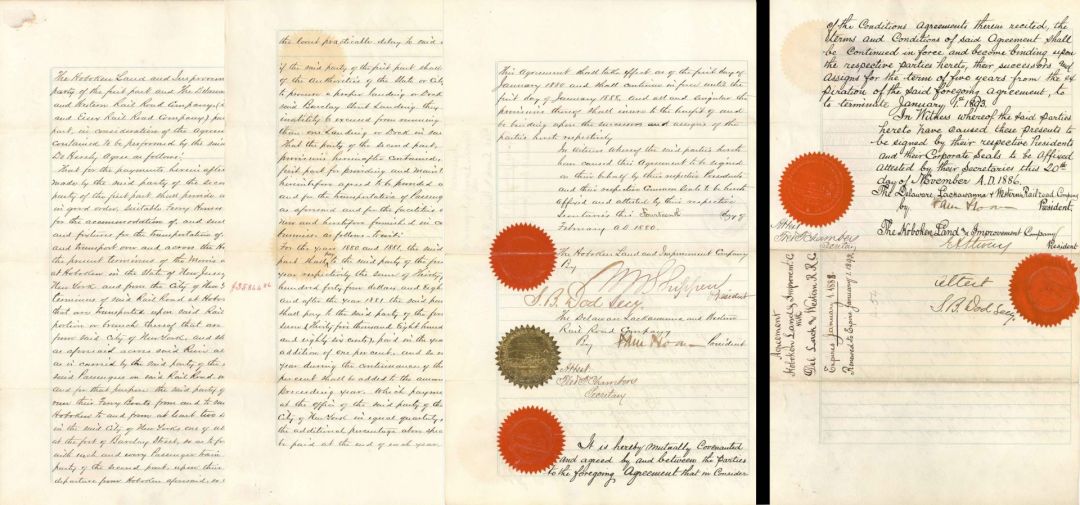 The Hoboken Land and Improvem
party of the first part and The Delaw
and Western Rail Road Company (
and Essex Rail Road Company) par
part, in consideration of the agreem
contained to be performed by the said
Do Hereby Agree as follows:
That for the payments herein after
made by the said party of the secon
party of the first part shall provide a
in good order, suitable Ferry Houses
for the accommodation of, and suit
and fixtures for the transportation of
and transport over and across the H
the present terminus of the Morris a
at Hoboken in the State of New Jersey
New York and from the City of New Y
terminus of said Rail Road at Hobok
that are transported upon said Rail
portion or branch thereof that are
from said City of New York, and sh
as aforesaid across said River al
as is carried by the said party of the s
said Passengers on said Rail Road
and for that purpose, the said party of
run their Ferry Boats from and to sai
Hoboken to and from at least two
in the said City of New York one of wh
at the foot of Barclay Street, so as to
with each and every Passenger train
party of the second part upon their
departure from Hoboken aforesaid, so
$35844.86
the least practicable delay to said
if the said party of the first part shall
of the Authorities of the State or City
to procure a proper landing or Dock
said Barclay Street Landing they
inability be excused from running
than one Landing or Dock in said
That the party of the second part,
provisions hereinafter contained,
first part for providing and maint
hereinbefore agreed to be provided a
and for the transportation of Passeng
as aforesaid and for the facilities
For the year 1880 and 1881, the said
part shall pay to the said party of the firs
year respectively the sum of Thirty
hundred forty four dollars and eigh
and after the year 1881 the said par
shall pay to the said party of the first
sum (thirty five thousand eight hund
and eighty six cents), paid in the year
addition of one per cent, and in
year during the continuance of this
per cent shall be added to the amou
preceeding year. Which payme
at the office of the said party of the
City of New York in equal quarterly
the additional percentage above spec
be paid at the end of each year
This Agreement shall take effect as of the first day of
January 1880 and shall continue in force until the
first day of January 1888, and all and singular the
provisions thereof shall inure to the benefit of and
be binding upon the successors and assigns of the
parties hereto respectively
In witness whereof the said parties hereto
have caused this Agreement to be signed
on their behalf by their respective Presidents
and their respective Common Seals to be hereto
affixed and attested by their respective
Secretaries this Fourteenth day of
February A.D. 1880.
The Hoboken Land and Improvement Company
By President
S.B. Dod Secy.
The Delaware Lackawanna and Western
Rail Road Company,
By Sam Sloan President
Attest
Fred F. Chambers
Secretary
It is hereby mutually Covenanted
and agreed by and between the parties
to the foregoing Agreement that in Consider
of the Conditions Agreements therein recited, the
terms and Conditions of said Agreement shall
be Continued in force and become binding upon
the respective parties hereto, their successors and
Assigns for the term of five years from the ex
piration of the said foregoing agreement, to
to terminate January 1st 1893.
In Witness whereof the said Parties
hereto have caused these presents to
be signed by their respective Presidents
and their Corporate Seals to be Affixed
attested by their Secretaries this 20th
day of November A.D. 1886.
The Delaware, Lackawanna & Western Railroad Company
by Sam Sloan President.
Attest
Fred F. Chambers
Secretary
The Hoboken Land & Improvement Company
President
attest
S.B. Dod Secy.
Agreement
Hoboken Land & Improvmt Co
with
Del. Lack. and Western R.R.Co.
Expires January 1, 1888
Renewed to Expire January 1, 1893.